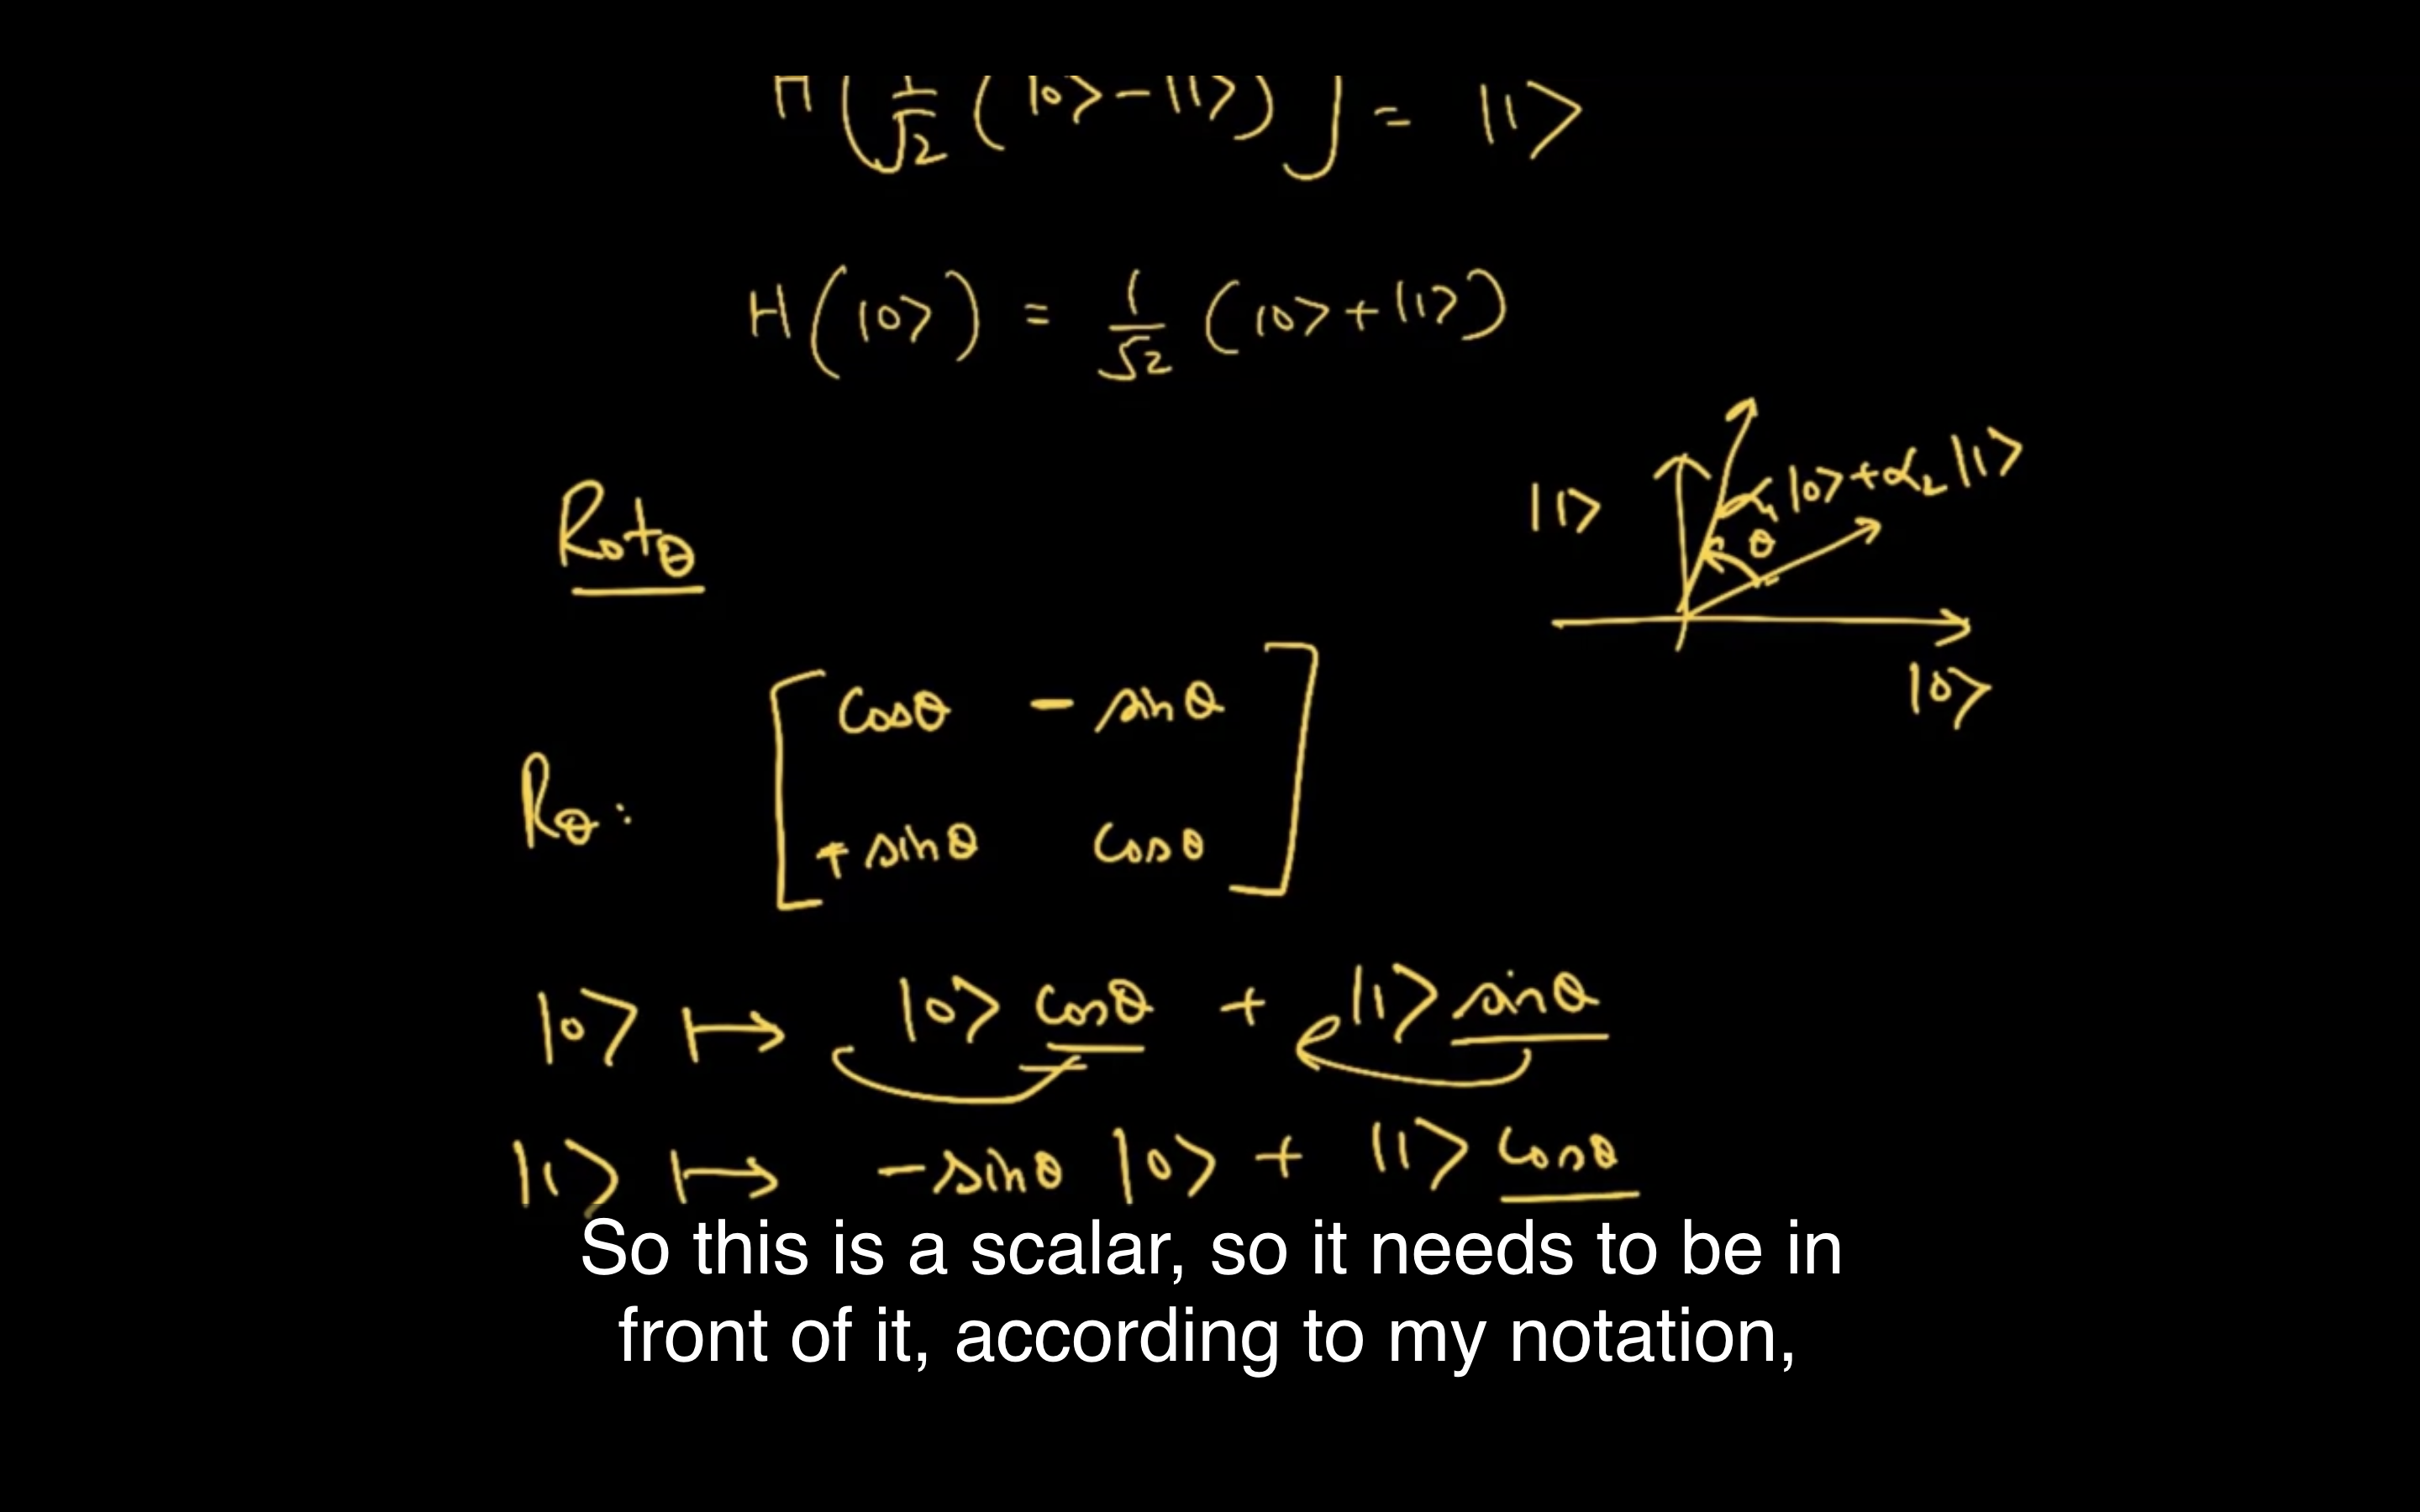 H(1/√2 (|0⟩-|1⟩)) = |1⟩
H(|0⟩) = 1/√2 (|0⟩+|1⟩)
Rotθ
|1⟩
α₁|0⟩+α₂|1⟩
θ
|0⟩
Rθ: [cosθ -sinθ
+sinθ cosθ]
|0⟩ ↦ |0⟩ cosθ + |1⟩ sinθ
|1⟩ ↦ -sinθ |0⟩ + |1⟩ cosθ
So this is a scalar, so it needs to be in
front of it, according to my notation,